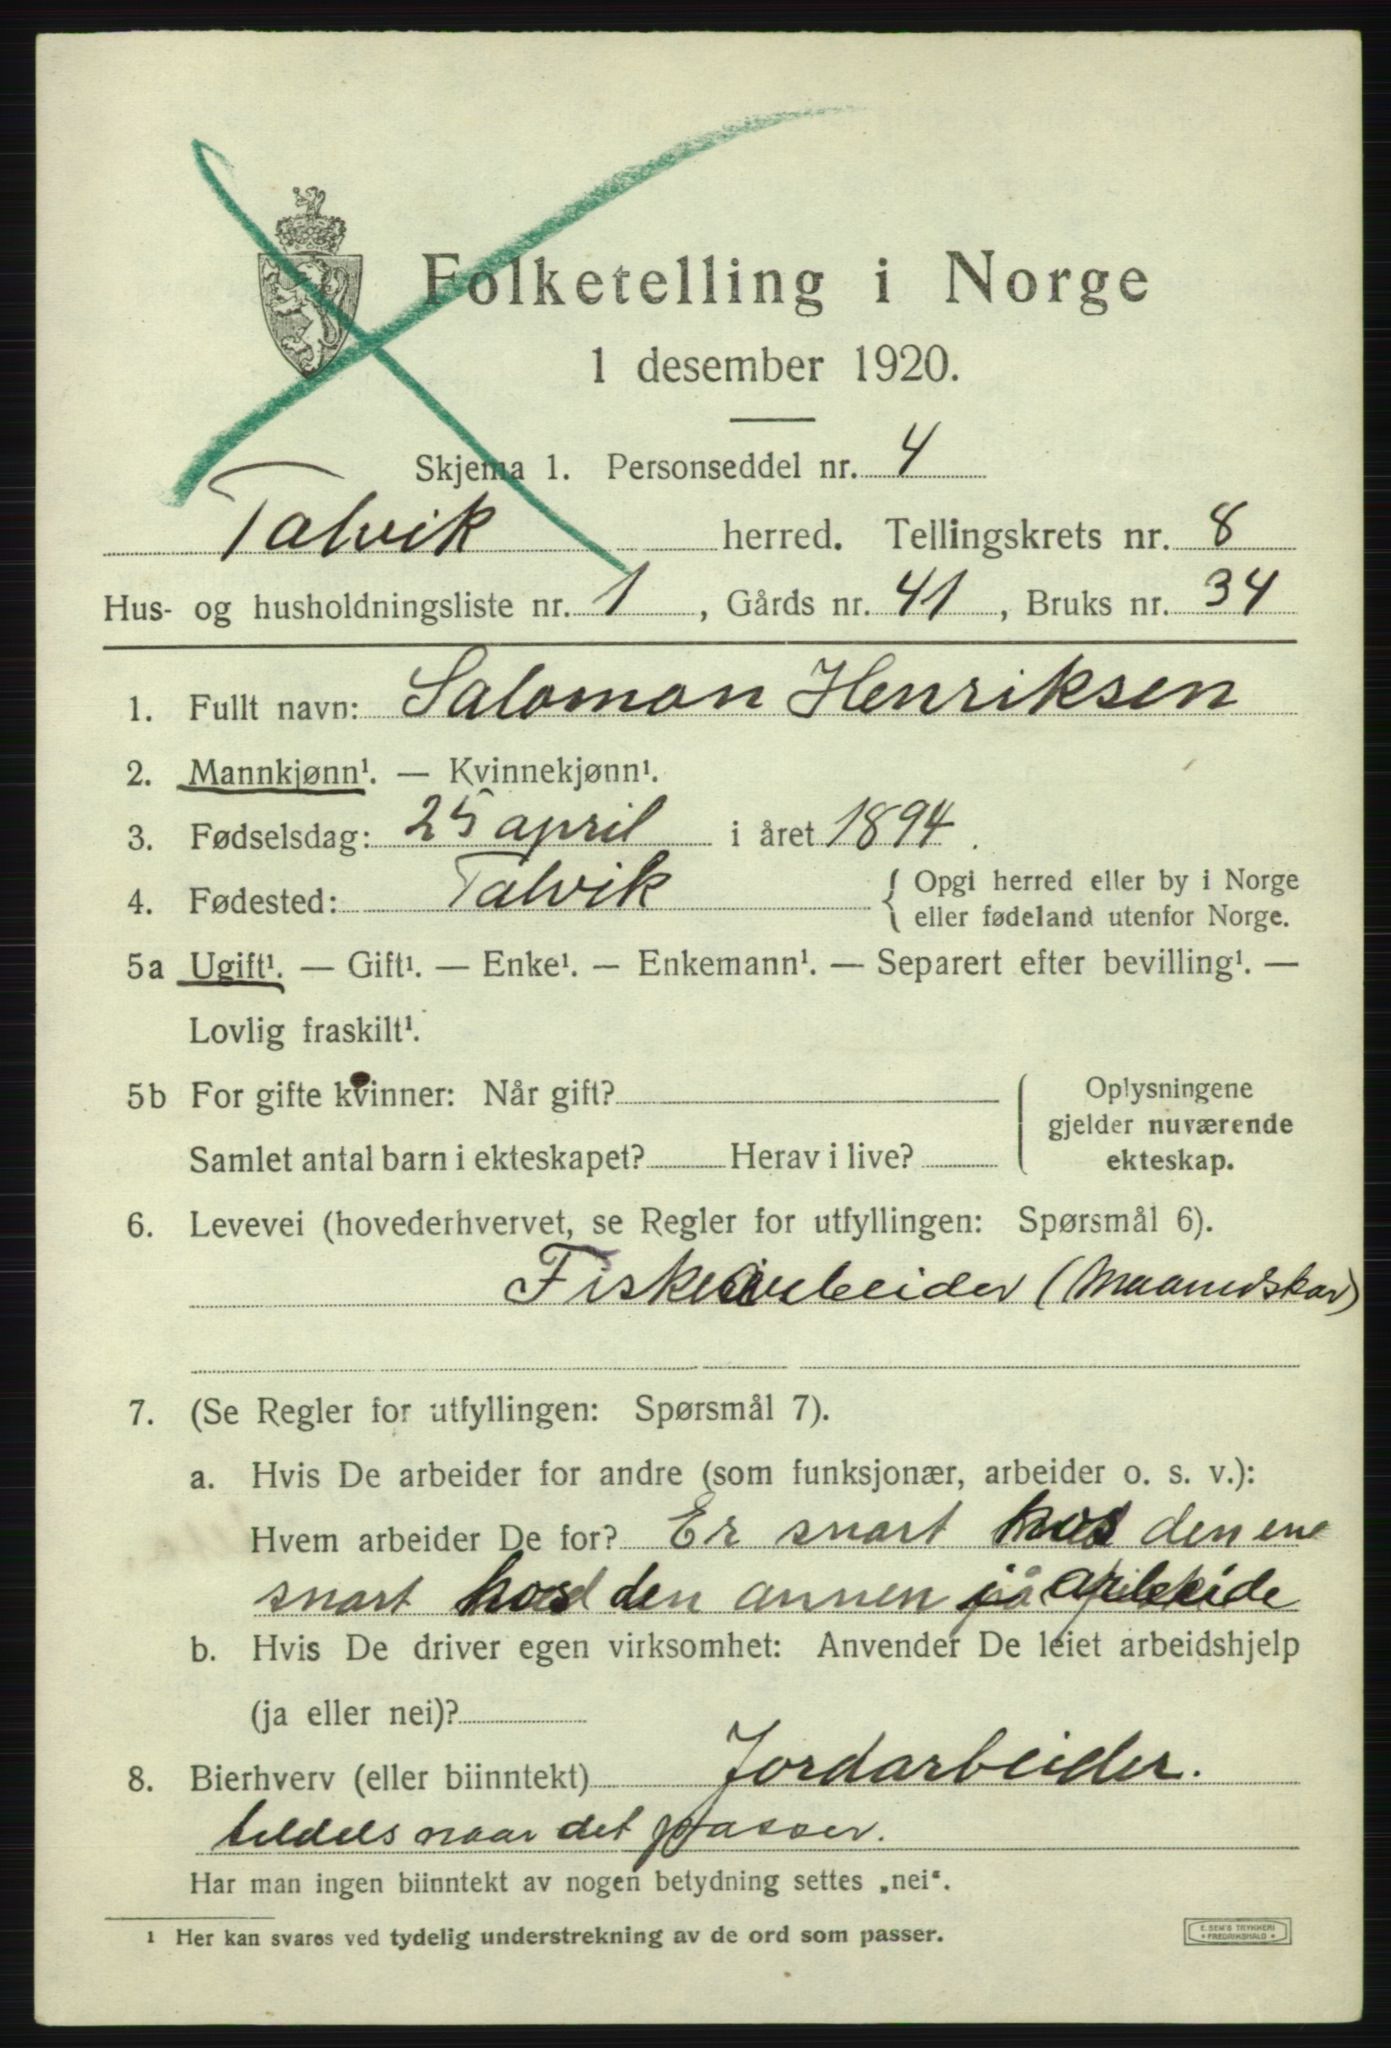 Folketelling i Norge
1 desember 1920.
Skjema 1. Personseddel nr. 4
Talvik herred. Tellingskrets nr. 8
Hus- og husholdningsliste nr. 1, Gårds nr. 41, Bruks nr. 34
1. Fullt navn: Salomon Henriksen
2. Mannkjønn¹. — Kvinnekjønn¹.
3. Fødselsdag: 25 april i året 1894.
4. Fødested: Talvik { Opgi herred eller by i Norge
eller fødeland utenfor Norge.
5a Ugift¹. — Gift¹. — Enke¹. — Enkemann¹. — Separert efter bevilling¹. —
Lovlig fraskilt¹.
5b For gifte kvinner: Når gift?
Samlet antal barn i ekteskapet? Herav i live?
Oplysningene
gjelder nuværende
ekteskap.
6. Levevei (hovederhvervet, se Regler for utfyllingen: Spørsmål 6).
Fiskeriarbeider (Maanedskar)
7. (Se Regler for utfyllingen: Spørsmål 7).
a. Hvis De arbeider for andre (som funksjonær, arbeider o. s. v.):
Hvem arbeider De for? Er snart hos den ene
snart hos den annen på arbeide
b. Hvis De driver egen virksomhet: Anvender De leiet arbeidshjelp
(ja eller nei)?
8. Bierhverv (eller biinntekt) Jordarbeider.
tildels naar det passer.
Har man ingen biinntekt av nogen betydning settes „nei“.
¹ Her kan svares ved tydelig understrekning av de ord som passer.
E. SEM'S TRYKKERI
FREDRIKSHALD